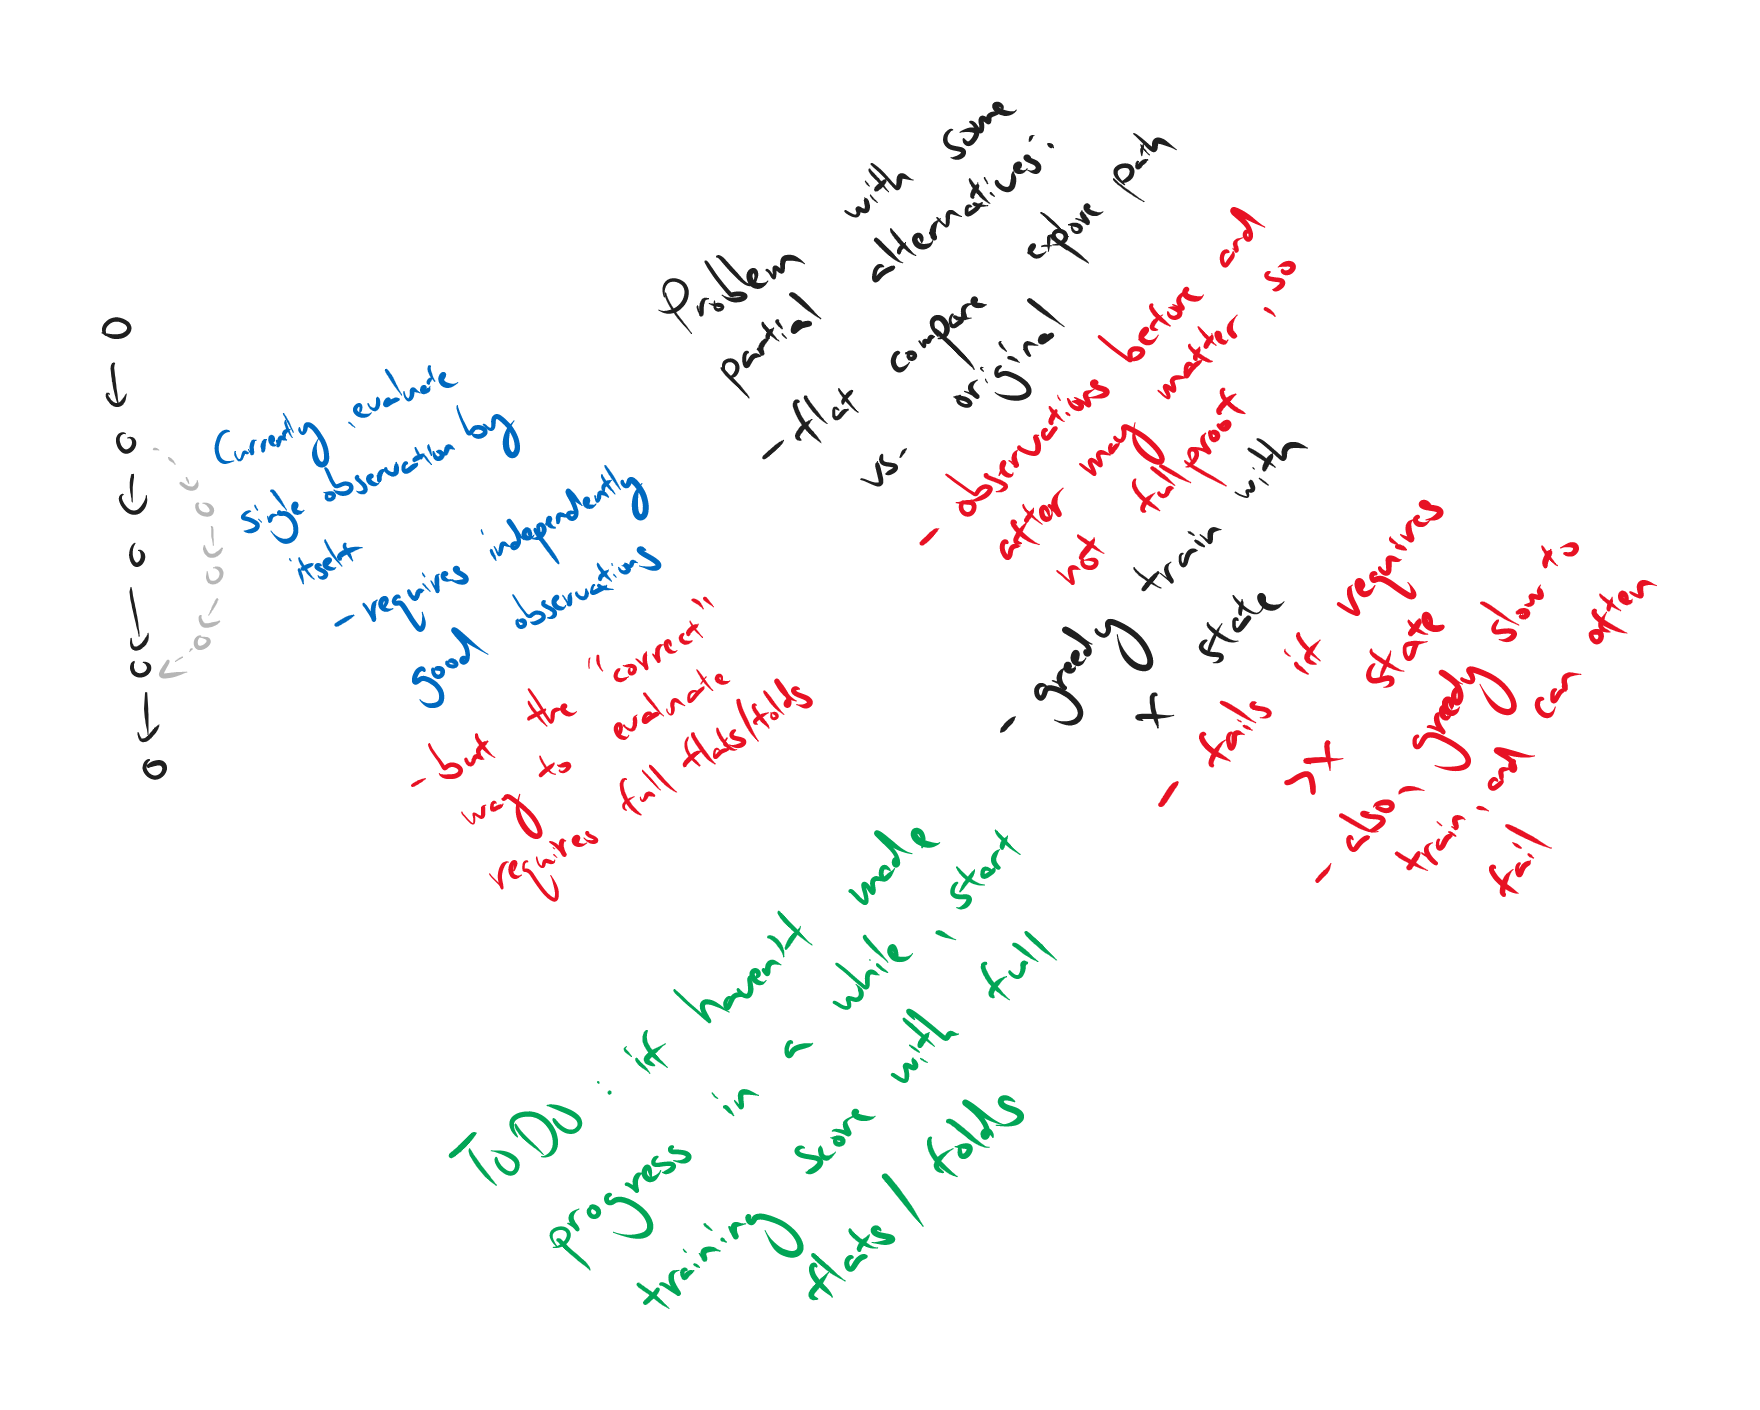 Currently, evaluate
single observation by
itself
- requires independently
good observations
- but the "correct"
way to evaluate
requires full flats/folds
Problem with some
partial alternatives:
- flat compare explore path
vs. original
- observations before and
after may matter, so
not full proof
- greedy train with
+ state
- fails if requires
>+ state
- also, greedy slow to
train, and can often
fail
ToDo: if haven't made
progress in a while, start
training score with full
flats/folds